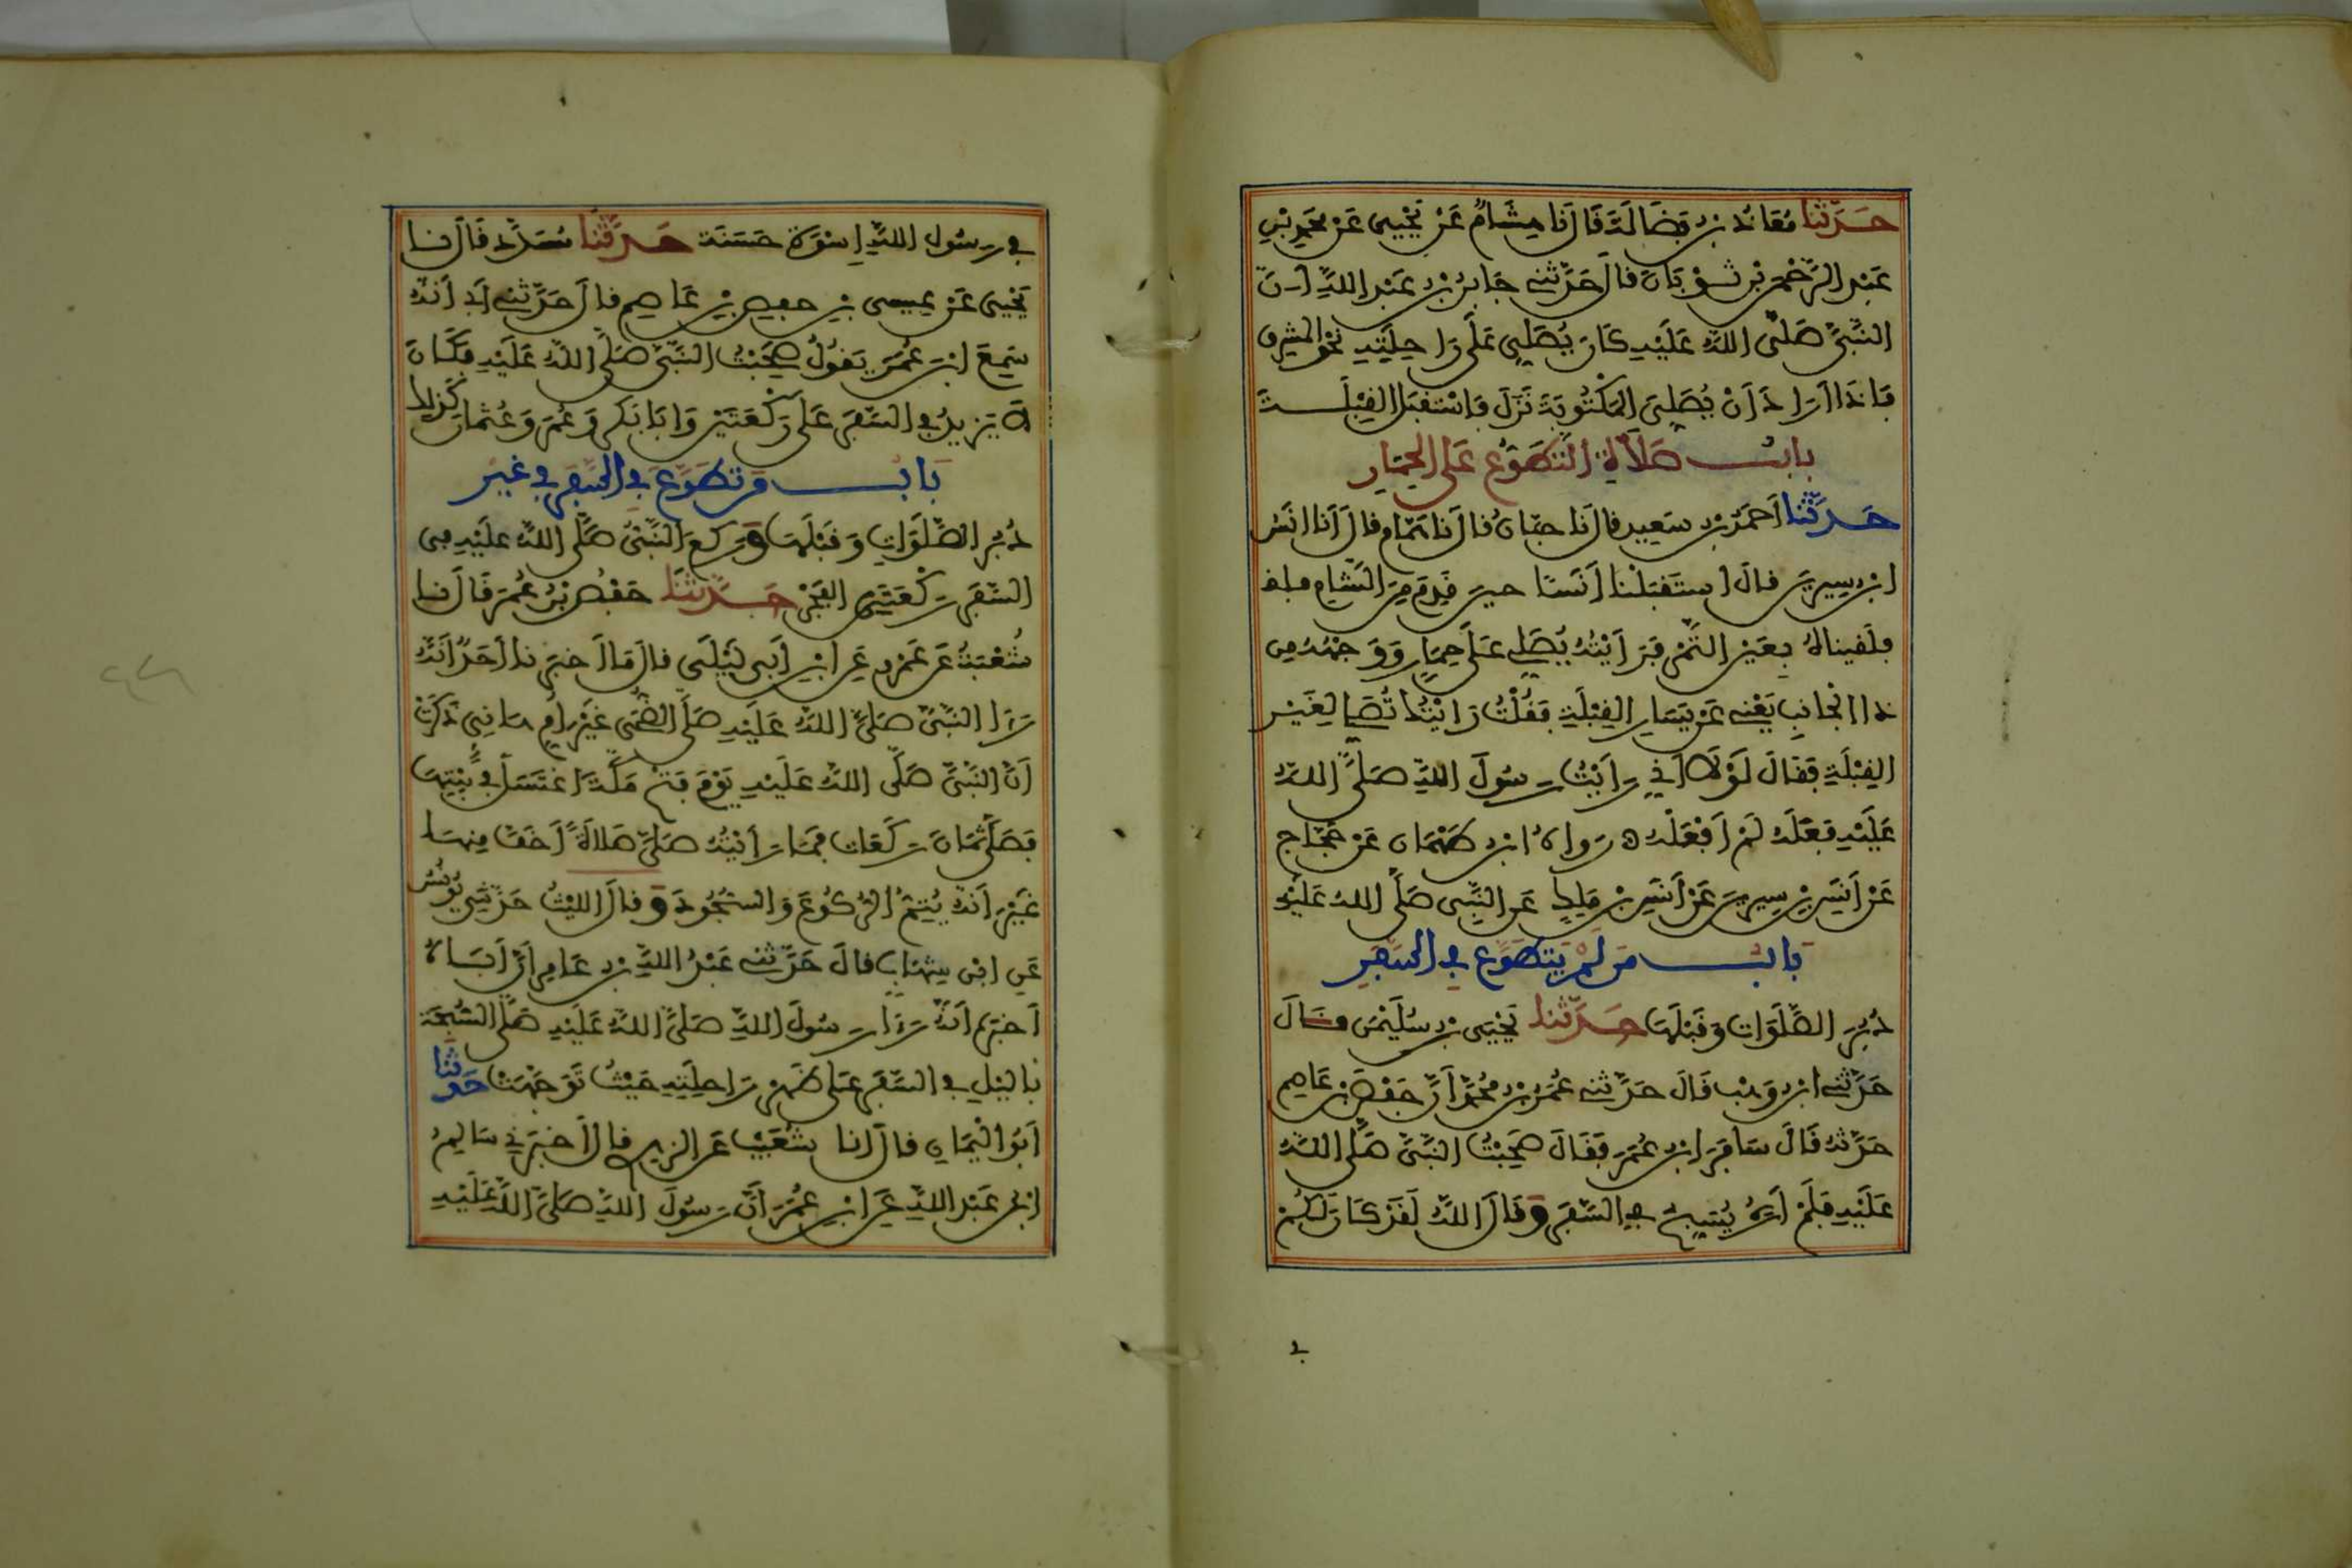 حَدَّثَنَا مُعَاذُ بْنُ فَضَالَةَ قَالَ نَا هِشَامٌ عَنْ يَحْيَى عَنْ مُحَمَّدِ بْنِ
عَبْدِ الرَّحْمَنِ بْنِ ثَوْبَانَ قَالَ حَدَّثَنِي جَابِرُ بْنُ عَبْدِ اللَّهِ أَنَّ
النَّبِيَّ صَلَّى اللَّهُ عَلَيْهِ كَانَ يُصَلِّي عَلَى رَاحِلَتِهِ نَحْوَ الْمَشْرِقِ
فَإِذَا أَرَادَ أَنْ يُصَلِّيَ الْمَكْتُوبَةَ نَزَلَ فَاسْتَقْبَلَ الْقِبْلَةَ
بَابُ صَلَاةِ التَّطَوُّعِ عَلَى الْحِمَارِ
حَدَّثَنَا أَحْمَدُ بْنُ سَعِيدٍ قَالَ نَا حَبَّانُ قَالَ نَا هَمَّام قَالَ أَنَا أَنَسُ
ابْنُ سِيرِينَ قَالَ اسْتَقْبَلْنَا أَنَسًا حِينَ قَدِمَ مِنَ الشَّامِ فلق
فَلَقِينَاهُ بِعَيْنِ التَّمْرِ فَرَأَيْتُهُ يُصَلِّي عَلَى حِمَارٍ وَوَجْهُهُ مِن
ذَا الْجَانِبِ يَعْنِي عَنْ يَسَارِ الْقِبْلَةِ فَقُلْتُ رَأَيْتُكَ تُصَلِّي لِغَيْرِ
الْقِبْلَةِ فَقَالَ لَوْلَا أَنِّي رَأَيْتُ رَسُولَ اللَّهِ صَلَّى اللَّهُ
عَلَيْهِ فَعَلَهُ لَمْ أَفْعَلْهُ رَوَاهُ ابْنُ طَهْمَانَ عَنْ حَجَّاجٍ
عَنْ أَنَسِ بْنِ سِيرِينَ عَنْ أَنَسِ بْنِ مَلِكٍ عَنِ النَّبِيِّ صَلَّى اللَّهُ عَلَيْهِ
بَابُ مَنْ لَمْ يَتَطَوَّعْ فِي السَّفَرِ
دُبُرَ الصَّلَوَاتِ وَقَبْلَهَا حَدَّثَنَا يَحْيَى بْنُ سُلَيْمَنَ قَالَ
حَدَّثَنِي ابْنُ وَهْبٍ قَالَ حَدَّثَنِي عُمَرُ بْنُ مُحَمَّدٍ أَنَّ حَفْصَ بْنَ عَاصِمٍ
حَدَّثَهُ قَالَ سَافَرَ ابْنُ عُمَرَ فَقَالَ صَحِبْتُ النَّبِيَّ صَلَّى اللَّهُ
عَلَيْهِ فَلَمْ أَرَهُ يُسَبِّحُ فِي السَّفَرِ وَقَالَ اللَّهُ لَقَدْ كَانَ لَكُمْ
فِي رَسُولِ اللَّهِ إِسْوَةٌ حَسَنَةٌ حَدَّثَنَا مُسَدَّدٌ قَالَ نَا
يَحْيَى عَنْ عِيسَى بْنِ حَفْصِ بْنِ عَاصِمٍ قَالَ حَدَّثَنِي أَبِي أَنَّهُ
سَمِعَ ابْنَ عُمَرَ يَقُولُ صَحِبْتُ النَّبِيَّ صَلَّى اللَّهُ عَلَيْهِ فَكَانَ
لَا يَزِيدُ فِي السَّفَرِ عَلَى رَكْعَتَيْنِ وَأَبَا بَكْرٍ وَعُمَرَ وَعُثْمَانَ كَذَلِكَ
بَابُ مَنْ تَطَوَّعَ فِي السَّفَرِ فِي غَيْرِ
دُبُرِ الصَّلَوَاتِ وَقَبْلَهَا وَرَكَعَ النَّبِيُّ صَلَّى اللَّهُ عَلَيْهِ فِي
السَّفَرِ رَكْعَتَيِ الْفَجْرِ حَدَّثَنَا حَفْصُ بْنُ عُمَرَ قَالَ نَا
شُعْبَةُ عَنْ عَمْرٍو عَنِ ابْنِ أَبِي لَيْلَى قَالَ مَا أَخْبَرَنَا أَحَدٌ أَنَّهُ
رَأَى النَّبِيَّ صَلَّى اللَّهُ عَلَيْهِ صَلَّى الضُّحَى غَيْرُ أُمِّ هَانِئٍ ذَكَرَتْ
أَنَّ النَّبِيَّ صَلَّى اللَّهُ عَلَيْهِ يَوْمَ فَتْحِ مَكَّةَ اغْتَسَلَ فِي بَيْتِهَا
فَصَلَّى ثَمَانَ رَكَعَاتٍ فَمَا رَأَيْتُهُ صَلَّى صَلَاةً أَخَفَّ مِنْهَا
غَيْرَ أَنَّهُ يُتِمُّ الرُّكُوعَ وَالسُّجُودَ وَقَالَ اللَّيْثُ حَدَّثَنِي يُونُسُ
عَنِ ابْنِ شِهَابٍ قَالَ حَدَّثَنِي عَبْدُ اللَّهِ بْنُ عَامِرٍ أَنَّ أَبَاهُ
أَخْبَرَهُ أَنَّهُ رَأَى رَسُولَ اللَّهِ صَلَّى اللَّهُ عَلَيْهِ صَلَّى السُّبْحَةَ
بِاللَّيْلِ فِي السَّفَرِ عَلَى ظَهْرِ رَاحِلَتِهِ حَيْثُ تَوَجَّهَتْ حَدَّثَنَا
أَبُو الْيَمَانِ قَالَ أَنَا شُعَيْبٌ عَنِ الزهري قَالَ أَخْبَرَنِي سَالِمُ
ابْنُ عَبْدِ اللَّهِ عَنِ ابْنِ عُمَرَ أَنَّ رَسُولَ اللَّهِ صَلَّى اللَّهُ عَلَيْهِ